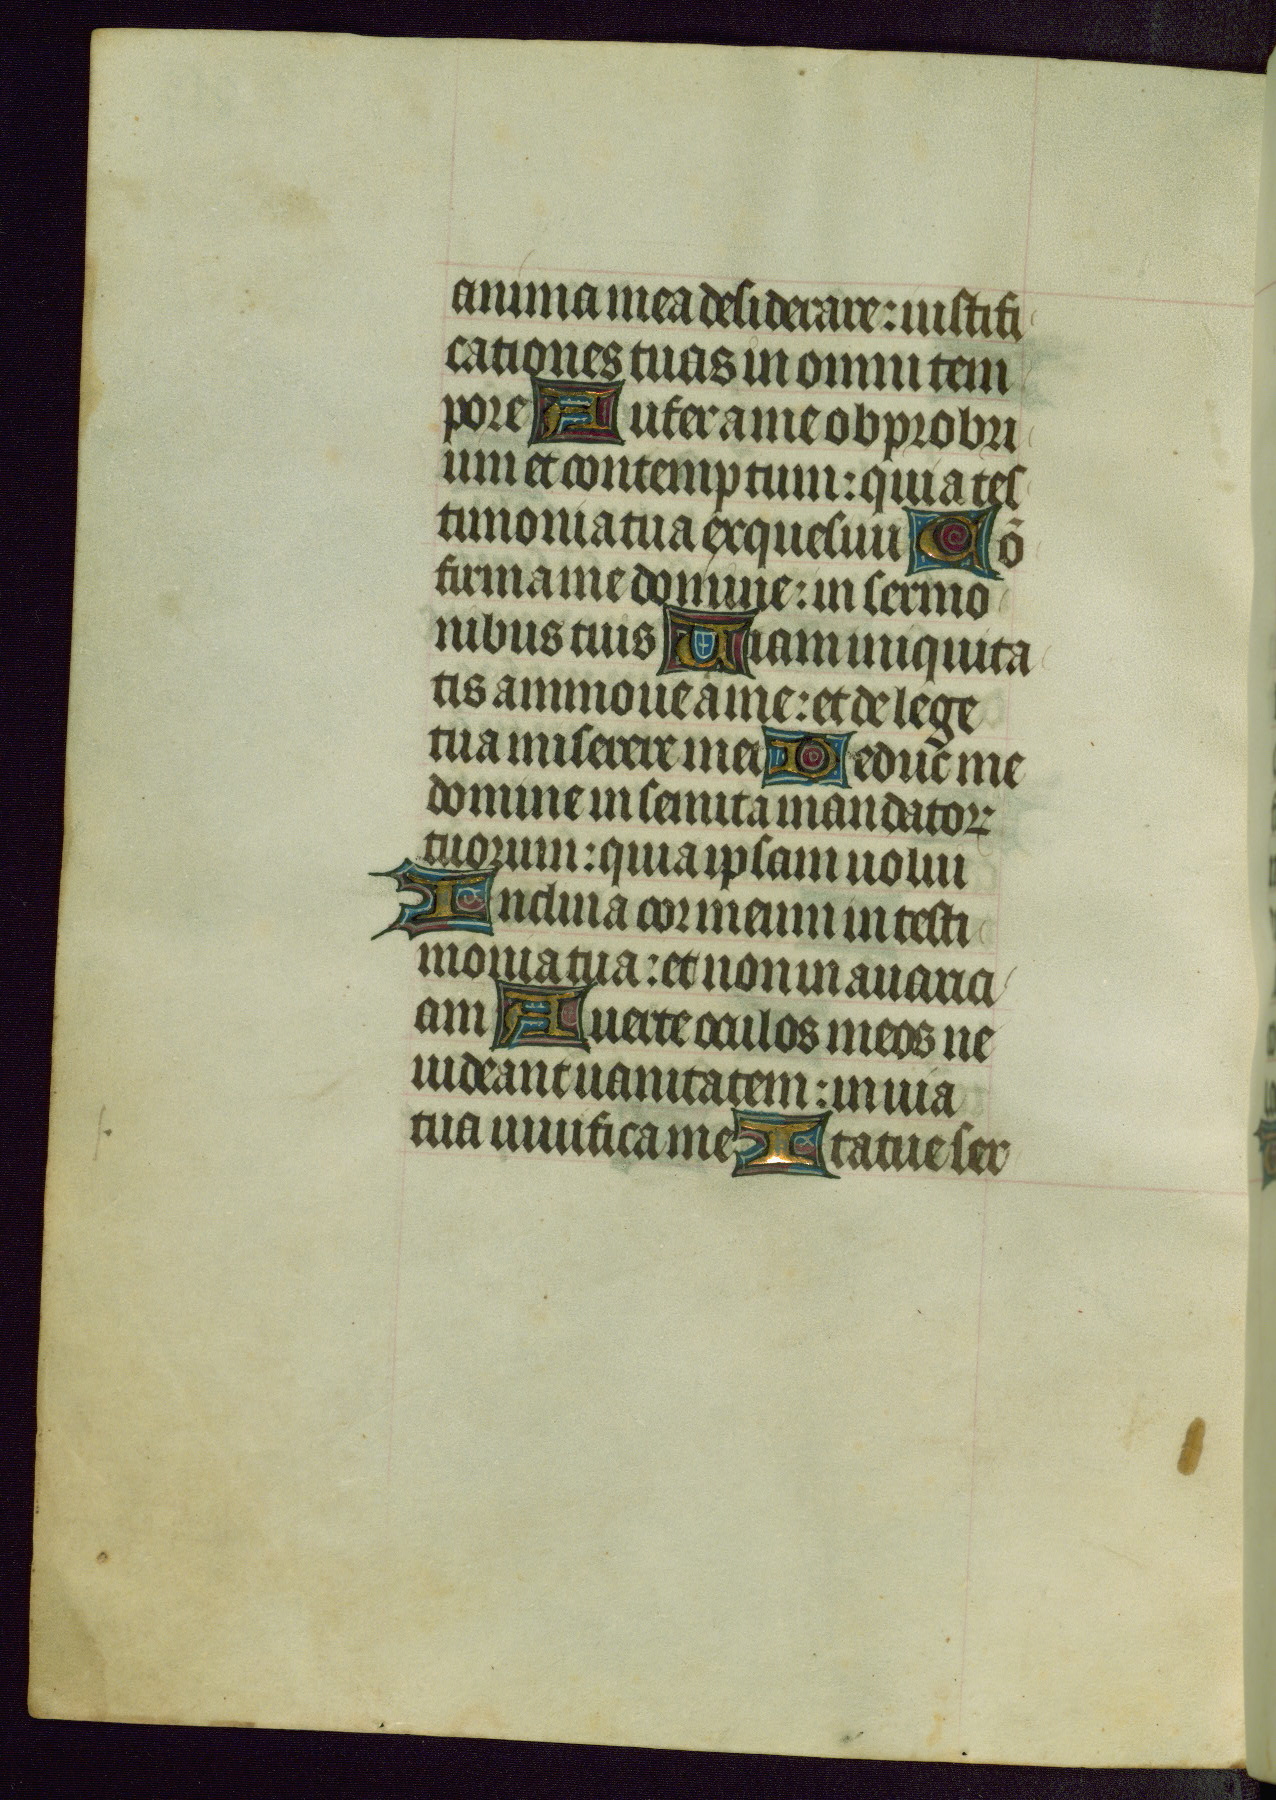 anima mea desiderare: iustifi
cationes tuas in omni tem
pore Aufer a me obprobri
um et contemptum: quia tes
timonia tua exquesiui Cō
firma me domine: in sermo
nibus tuis Uiam iniquita
tis ammoue a me: et de lege
tua miserere mei Deduc̄ me
domine in semita mandatoꝝ
tuorum: quia ipsam uolui
Inclina cor meum in testi
monia tua: et non in auarici
am Auerte oculos meos ne
uideant uanitatem: in uia
tua uiuifica me Itatue ser